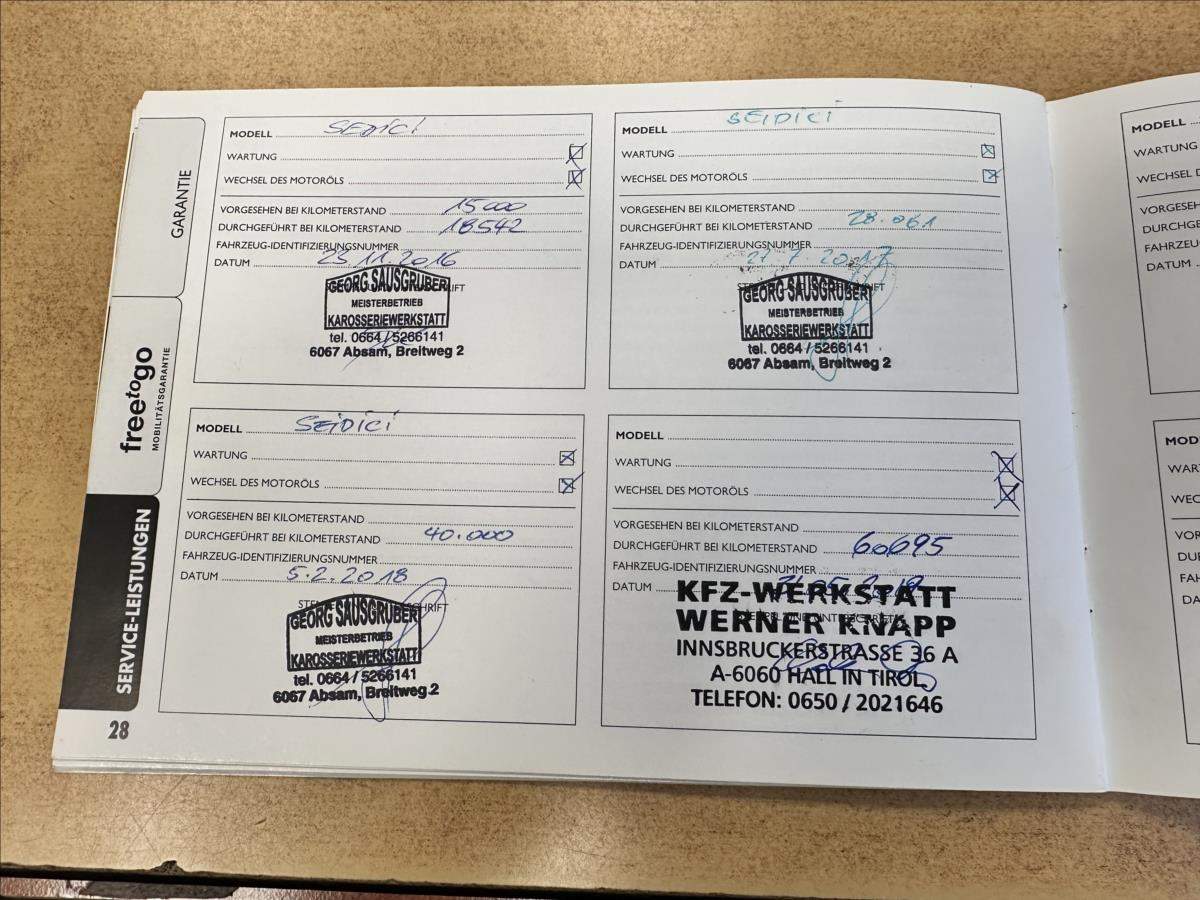 GARANTIE
free to go
MOBILITÄTSGARANTIE
SERVICE-LEISTUNGEN
28
MODELL SEDICI
WARTUNG
WECHSEL DES MOTORÖLS
VORGESEHEN BEI KILOMETERSTAND 15000
DURCHGEFÜHRT BEI KILOMETERSTAND 18542
FAHRZEUG-IDENTIFIZIERUNGSNUMMER
DATUM 23.11.2016
GEORG SAUSGRUBER
MEISTERBETRIEB
KAROSSERIEWERKSTATT
tel. 0664 / 5266141
6067 Absam, Breitweg 2
MODELL SEIDICI
WARTUNG
WECHSEL DES MOTORÖLS
VORGESEHEN BEI KILOMETERSTAND
DURCHGEFÜHRT BEI KILOMETERSTAND 28.061
FAHRZEUG-IDENTIFIZIERUNGSNUMMER
DATUM 27.7.2017
GEORG SAUSGRUBER
MEISTERBETRIEB
KAROSSERIEWERKSTATT
tel. 0664 / 5266141
6067 Absam, Breitweg 2
MODELL SEIDICI
WARTUNG
WECHSEL DES MOTORÖLS
VORGESEHEN BEI KILOMETERSTAND
DURCHGEFÜHRT BEI KILOMETERSTAND 40.000
FAHRZEUG-IDENTIFIZIERUNGSNUMMER
DATUM 5.2.2018
GEORG SAUSGRUBER
MEISTERBETRIEB
KAROSSERIEWERKSTATT
tel. 0664 / 5266141
6067 Absam, Breitweg 2
MODELL
WARTUNG
WECHSEL DES MOTORÖLS
VORGESEHEN BEI KILOMETERSTAND
DURCHGEFÜHRT BEI KILOMETERSTAND 60695
FAHRZEUG-IDENTIFIZIERUNGSNUMMER
DATUM
KFZ-WERKSTATT
WERNER KNAPP
INNSBRUCKERSTRASSE 36 A
A-6060 HALL IN TIROL
TELEFON: 0650 / 2021646
MODELL
WARTUNG
WECHSEL
DATUM